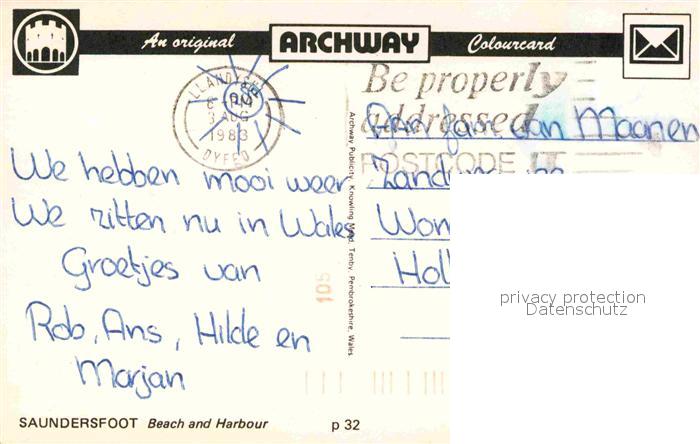 An original ARCHWAY Colourcard
LLANDYSUL
6 - PM
3 AUG
1983
DYFED
Be properly
addressed
POSTCODE IT
Fam. van Maanen
We hebben mooi weer
We zitten nu in Wales
Groetjes van
Rob, Ans, Hilde en
Marjan
Holl
Archway Publicity, Knowling Mead, Tenby, Pembrokeshire, Wales
105
privacy protection
Datenschutz
SAUNDERSFOOT Beach and Harbour p 32